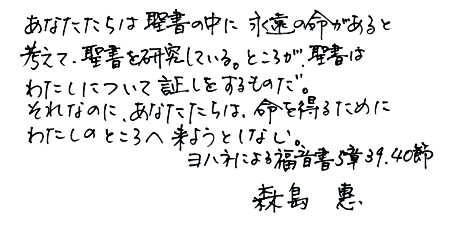 あなたたちは聖書の中に永遠の命があると
考えて、聖書を研究している。ところが、聖書は
わたしについて証しをするものだ。
それなのに、あなたたちは、命を得るために
わたしのところへ来ようとしない。
ヨハネによる福音書5章39.40節
森島 恵